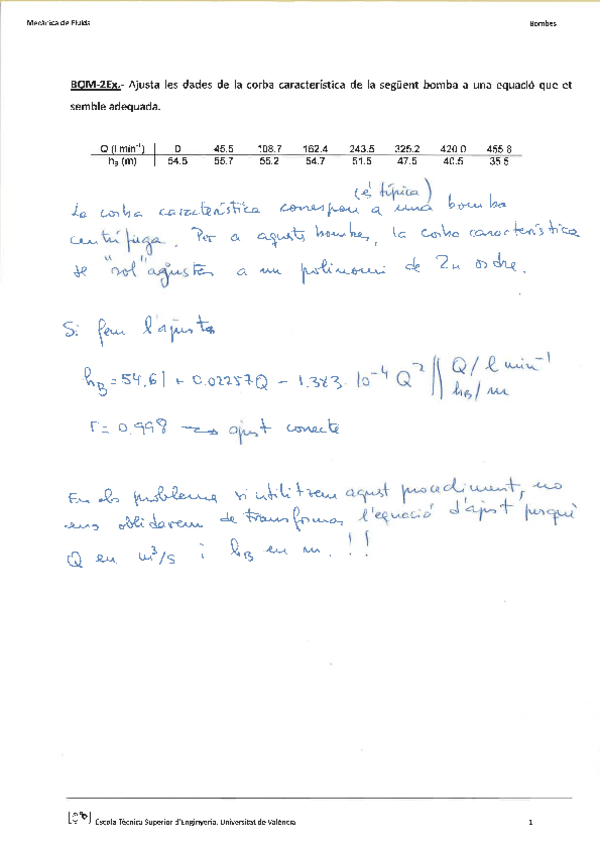 Mecànica de Fluids
Bombes
BOM-2Ex.- Ajusta les dades de la corba característica de la següent bomba a una equació que et
semble adequada.
Q (l min⁻¹) 0 45.5 108.7 162.4 243.5 325.2 420.0 455.8
h_B (m) 54.5 55.7 55.2 54.7 51.5 47.5 40.5 35.5
(és típica)
La corba característica correspon a una bomba
centrífuga. Per a aquests bombes, la corba característica
se "sol" ajustar a un polinomi de 2n ordre.
Si fem l'ajust
h_B = 54.61 + 0.02257Q - 1.383·10⁻⁴ Q² || Q/l min⁻¹
h_B/m
r = 0.998 → ajust correcte
En els problema si utilitzem aquest procediment, no
ens oblidarem de transformar l'equació d'ajust perquè
Q en m³/s i h_B en m.!!
Escola Tècnica Superior d'Enginyeria. Universitat de València
1